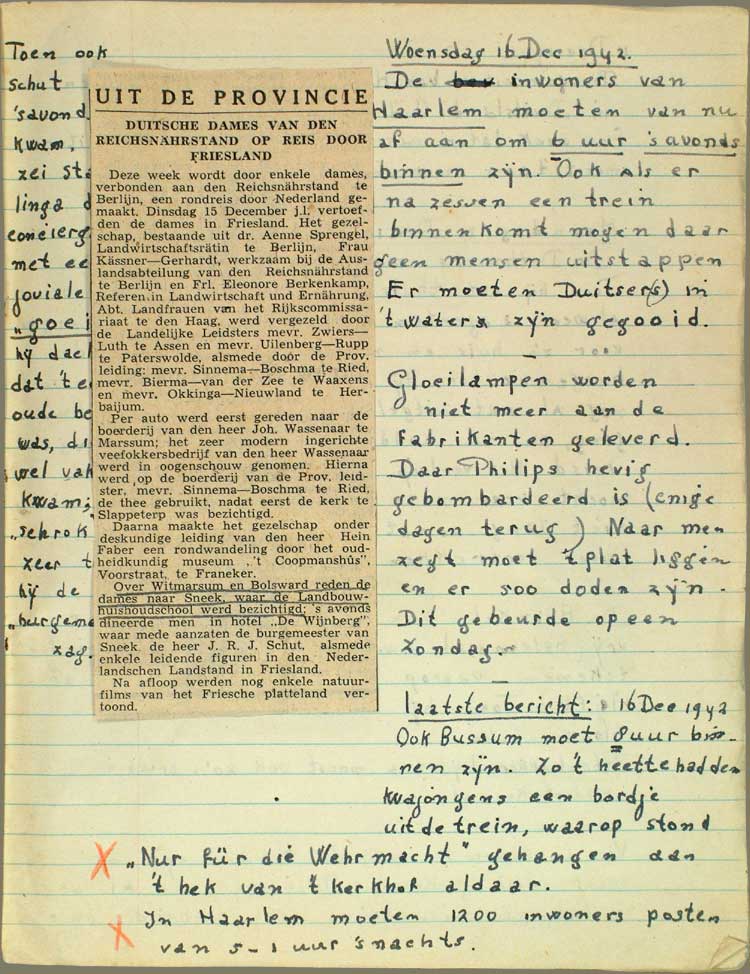 Toen ook
schut
'savond
kwam,
zei
linga
concierg
met ee
joviale
„goei
hy dac
dat 't
oude be
was, di
wel vak
kwam;
„schrok
zeer t
hy de
„burgeme
zag.
UIT DE PROVINCIE
DUITSCHE DAMES VAN DEN
REICHSNÄHRSTAND OP REIS DOOR
FRIESLAND
Deze week wordt door enkele dames,
verbonden aan den Reichsnährstand te
Berlijn, een rondreis door Nederland ge-
maakt. Dinsdag 15 December j.l. vertoef-
den de dames in Friesland. Het gezel-
schap, bestaande uit dr. Aenne Sprengel,
Landwirtschaftsrätin te Berlijn, Frau
Kässner—Gerhardt, werkzaam bij de Aus-
landsabteilung van den Reichsnährstand
te Berlijn en Frl. Eleonore Berkenkamp,
Referen.in Landwirtschaft und Ernährung,
Abt. Landfrauen van het Rijkscommissa-
riaat te den Haag, werd vergezeld door
de Landelijke Leidsters mevr. Zwiers—
Luth te Assen en mevr. Uilenberg—Rupp
te Paterswolde, alsmede door de Prov.
leiding: mevr. Sinnema—Boschma te Ried,
mevr. Bierma—van der Zee te Waaxens
en mevr. Okkinga—Nieuwland te Her-
baijum.
Per auto werd eerst gereden naar de
boerderij van den heer Joh. Wassenaar te
Marssum; het zeer modern ingerichte
veefokkersbedrijf van den heer Wassenaar
werd in oogenschouw genomen. Hierna
werd op de boerderij van de Prov. leid-
ster, mevr. Sinnema—Boschma te Ried,
de thee gebruikt, nadat eerst de kerk te
Slappeterp was bezichtigd.
Daarna maakte het gezelschap onder
deskundige leiding van den heer Hein
Faber een rondwandeling door het oud-
heidkundig museum „'t Coopmanshûs",
Voorstraat, te Franeker.
Over Witmarsum en Bolsward reden de
dames naar Sneek, waar de Landbouw-
huishoudschool werd bezichtigd; 's avonds
dineerde men in hotel „De Wijnberg",
waar mede aanzaten de burgemeester van
Sneek, de heer J. R. J. Schut, alsmede
enkele leidende figuren in den Neder-
landschen Landstand in Friesland.
Na afloop werden nog enkele natuur-
films van het Friesche platteland ver-
toond.
Woensdag 16 Dec 1942.
De inwoners van
Haarlem moeten van nu
af aan om 6 uur 's avonds
binnen zyn. Ook als er
na zessen een trein
binnenkomt mogen daar
geen mensen uitstappen
Er moeten Duitser(s) in
't waters zyn gegooid.
—
Gloeilampen worden
niet meer aan de
fabrikanten geleverd.
Daar Philips hevig
gebombardeerd is (enige
dagen terug) Naar men
zegt moet 't plat liggen
en er 500 doden zyn.
Dit gebeurde op een
Zondag.
—
laatste bericht: 16 Dec 1942
Ook Bussum moet 8 uur bin-
nen zyn. Zo't heette hadden
kwajongens een bordje
uit de trein, waarop stond
X „Nur für die Wehrmacht" gehangen aan
't hek van 't kerkhof aldaar.
X In Haarlem moeten 1200 inwoners posten
van 5–1 uur 's nachts.